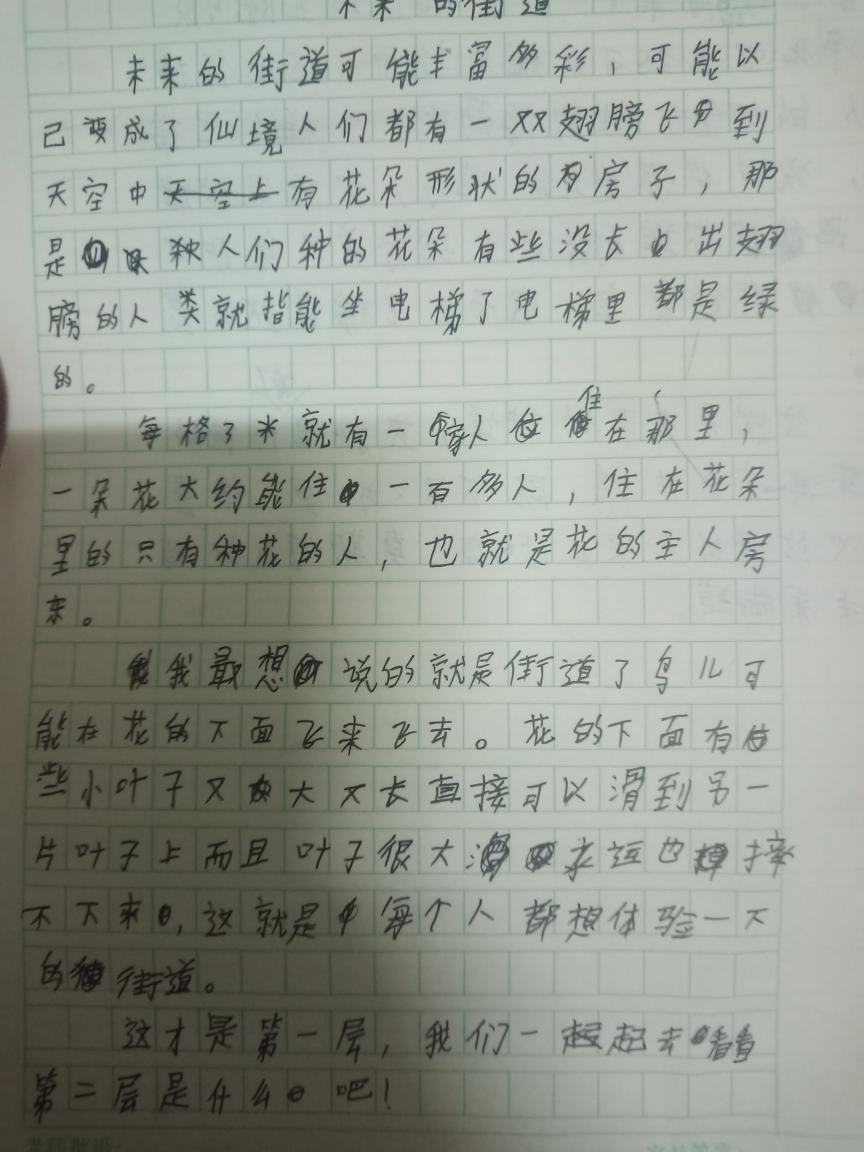 未来的街道
未来的街道可能丰富多彩，可能以
己变成了仙境人们都有一双翅膀飞到
天空中天空上有花朵形状的房子，那
是人们种的花朵有些没长出翅
膀的人类就指能坐电梯了电梯里都是绿
的。
每格3米就有一家人住在那里，
一朵花大约能住一百多人，住在花朵
里的只有种花的人，也就是花的主人房
东。
我最想说的就是街道了鸟儿可
能在花的下面飞来飞去。花的下面有
些小叶子又大又长直接可以滑到另一
片叶子上而且叶子很大永远也摔
不下来，这就是每个人都想体验一下
的街道。
这才是第一层，我们一起去看看
第二层是什么吧！